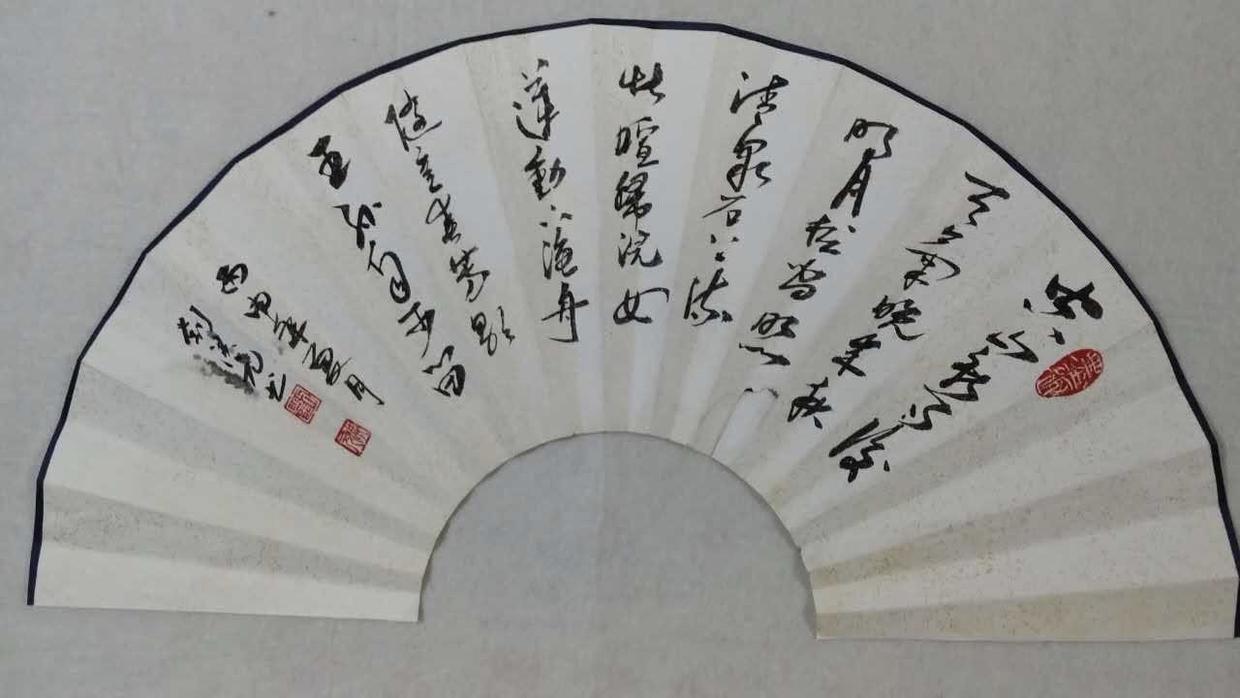 空山新雨後
天氣晚来秋
明月松间照
清泉石上流
竹喧歸浣女
蓮動下漁舟
随意春芳歇
王孙自可留
丙申年夏月
书